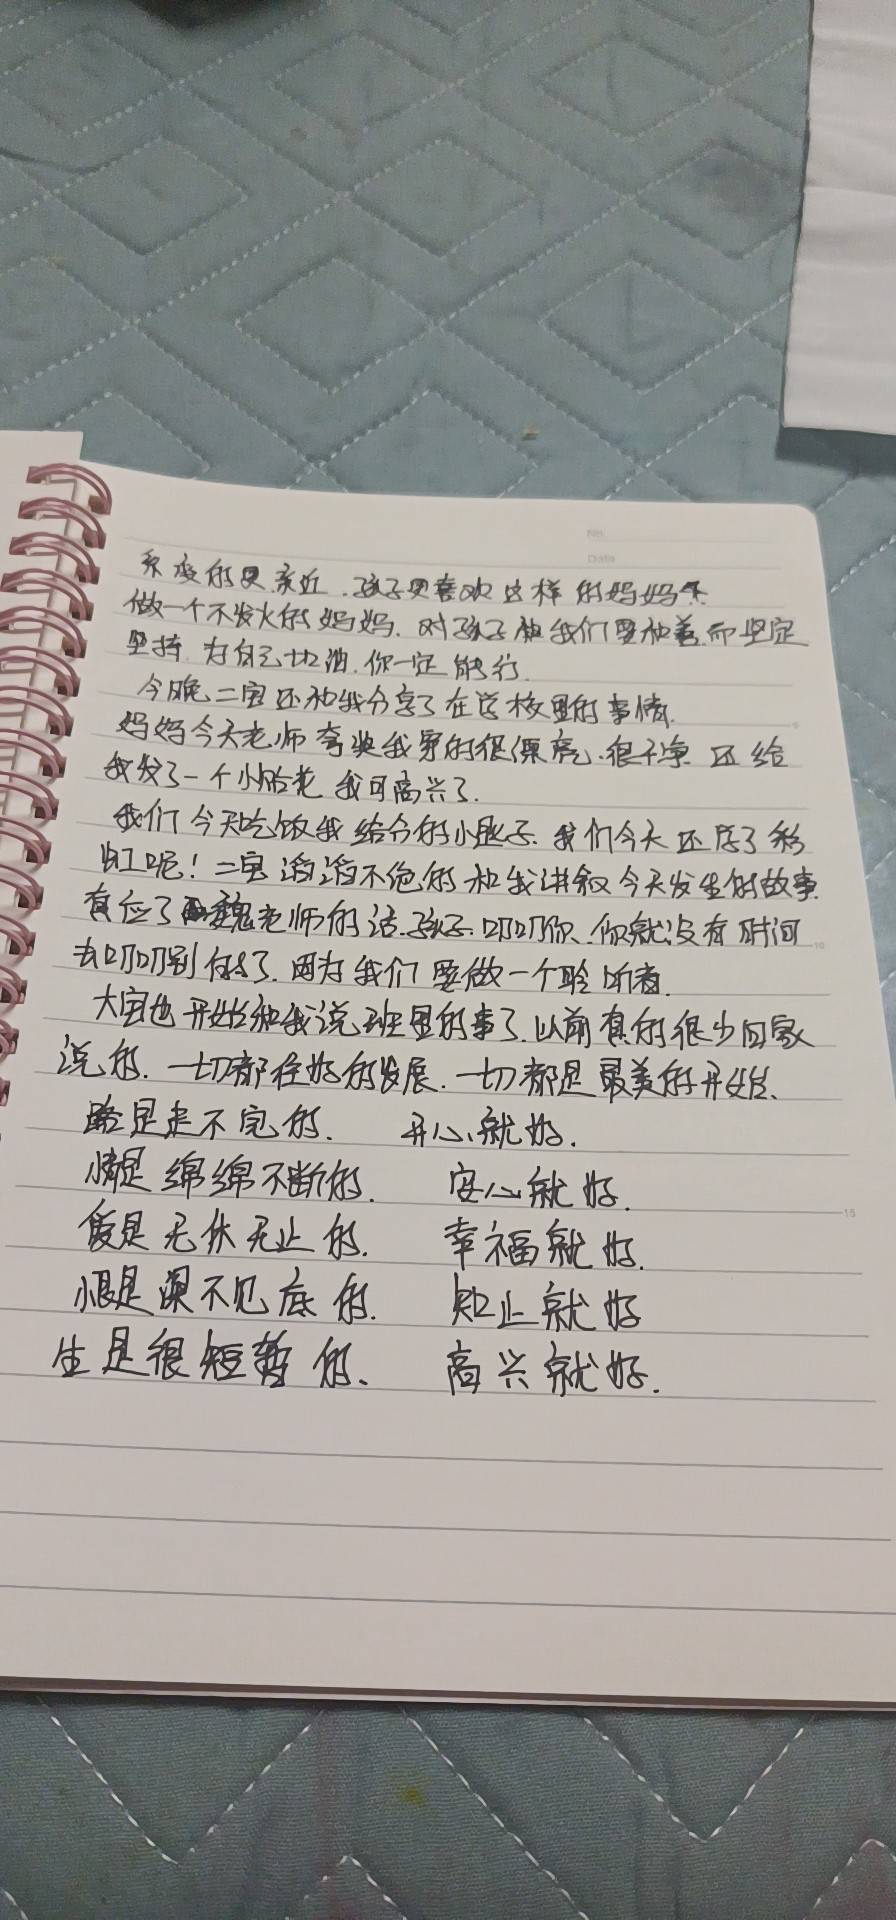 No.
Date
系变的更亲近.孩子更喜欢这样的妈妈
做一个不发火的妈妈.对孩子和我们要和善而坚定
坚持.为自己加油.你一定能行.
今晚二宝还和我分享了在学校里的事情.
妈妈今天老师夸奖我穿的很漂亮.很干净 还给
我发了一个小贴花 我可高兴了.
我们今天吃饭我给分的小肚子.我们今天还 了彩
虹呢!二宝滔滔不绝的和我讲叙今天发生的故事.
真应了魏老师的话.孩子.叨叨你、你就没有时间
去叨叨别的了.因为我们要做一个聆听者.
大宝也开始和我说班里的事了.以前真的很少回家
说的.一切都在好的发展.一切都是最美的开始、
路是走不完的. 开心就好.
情是绵绵不断的. 安心就好.
爱是无休无止的. 幸福就好.
恨是深不见底的. 知止就好
生是很短暂的、 高兴就好.
5
10
15